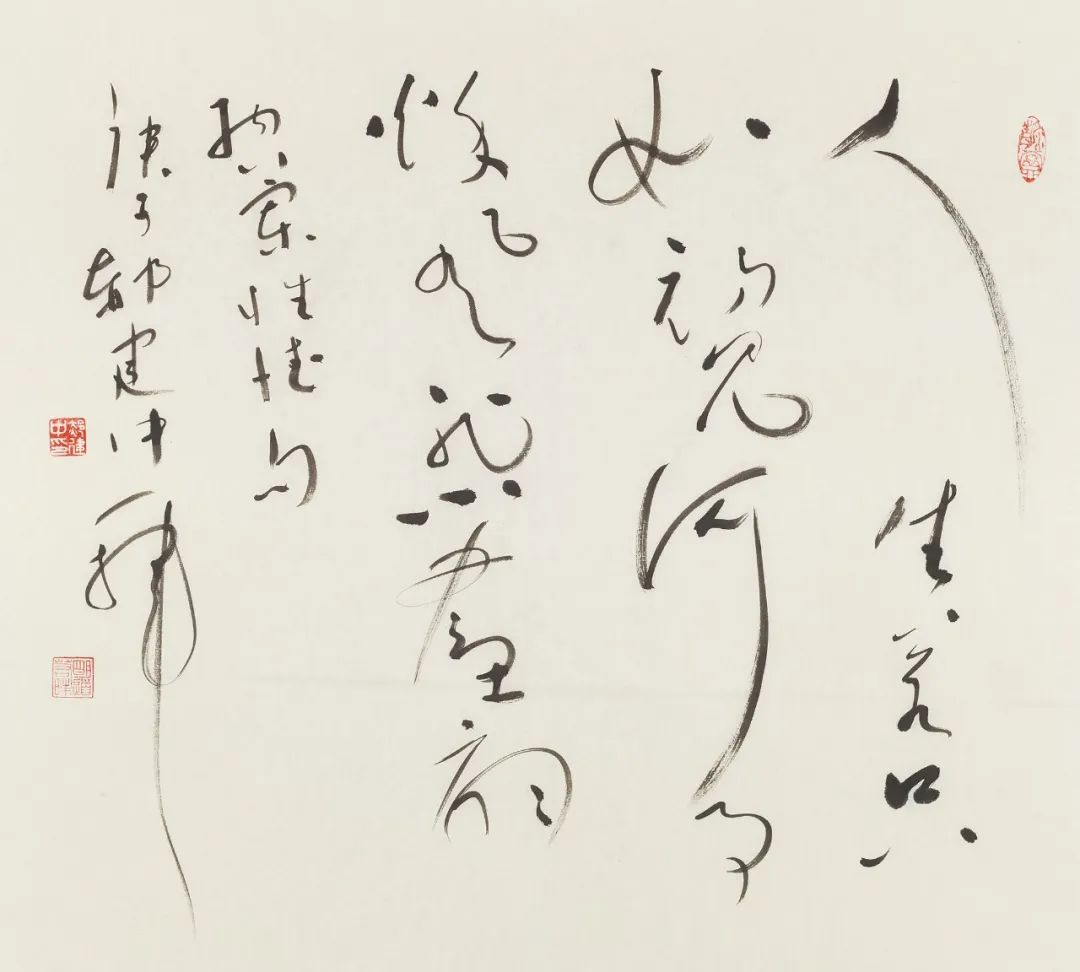 人生若只
如初见何事
秋风悲画扇
纳兰性德句
庚子